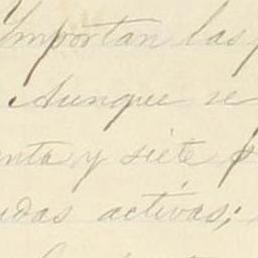 Importan las
Aunque se
enta y siete
udas activas;